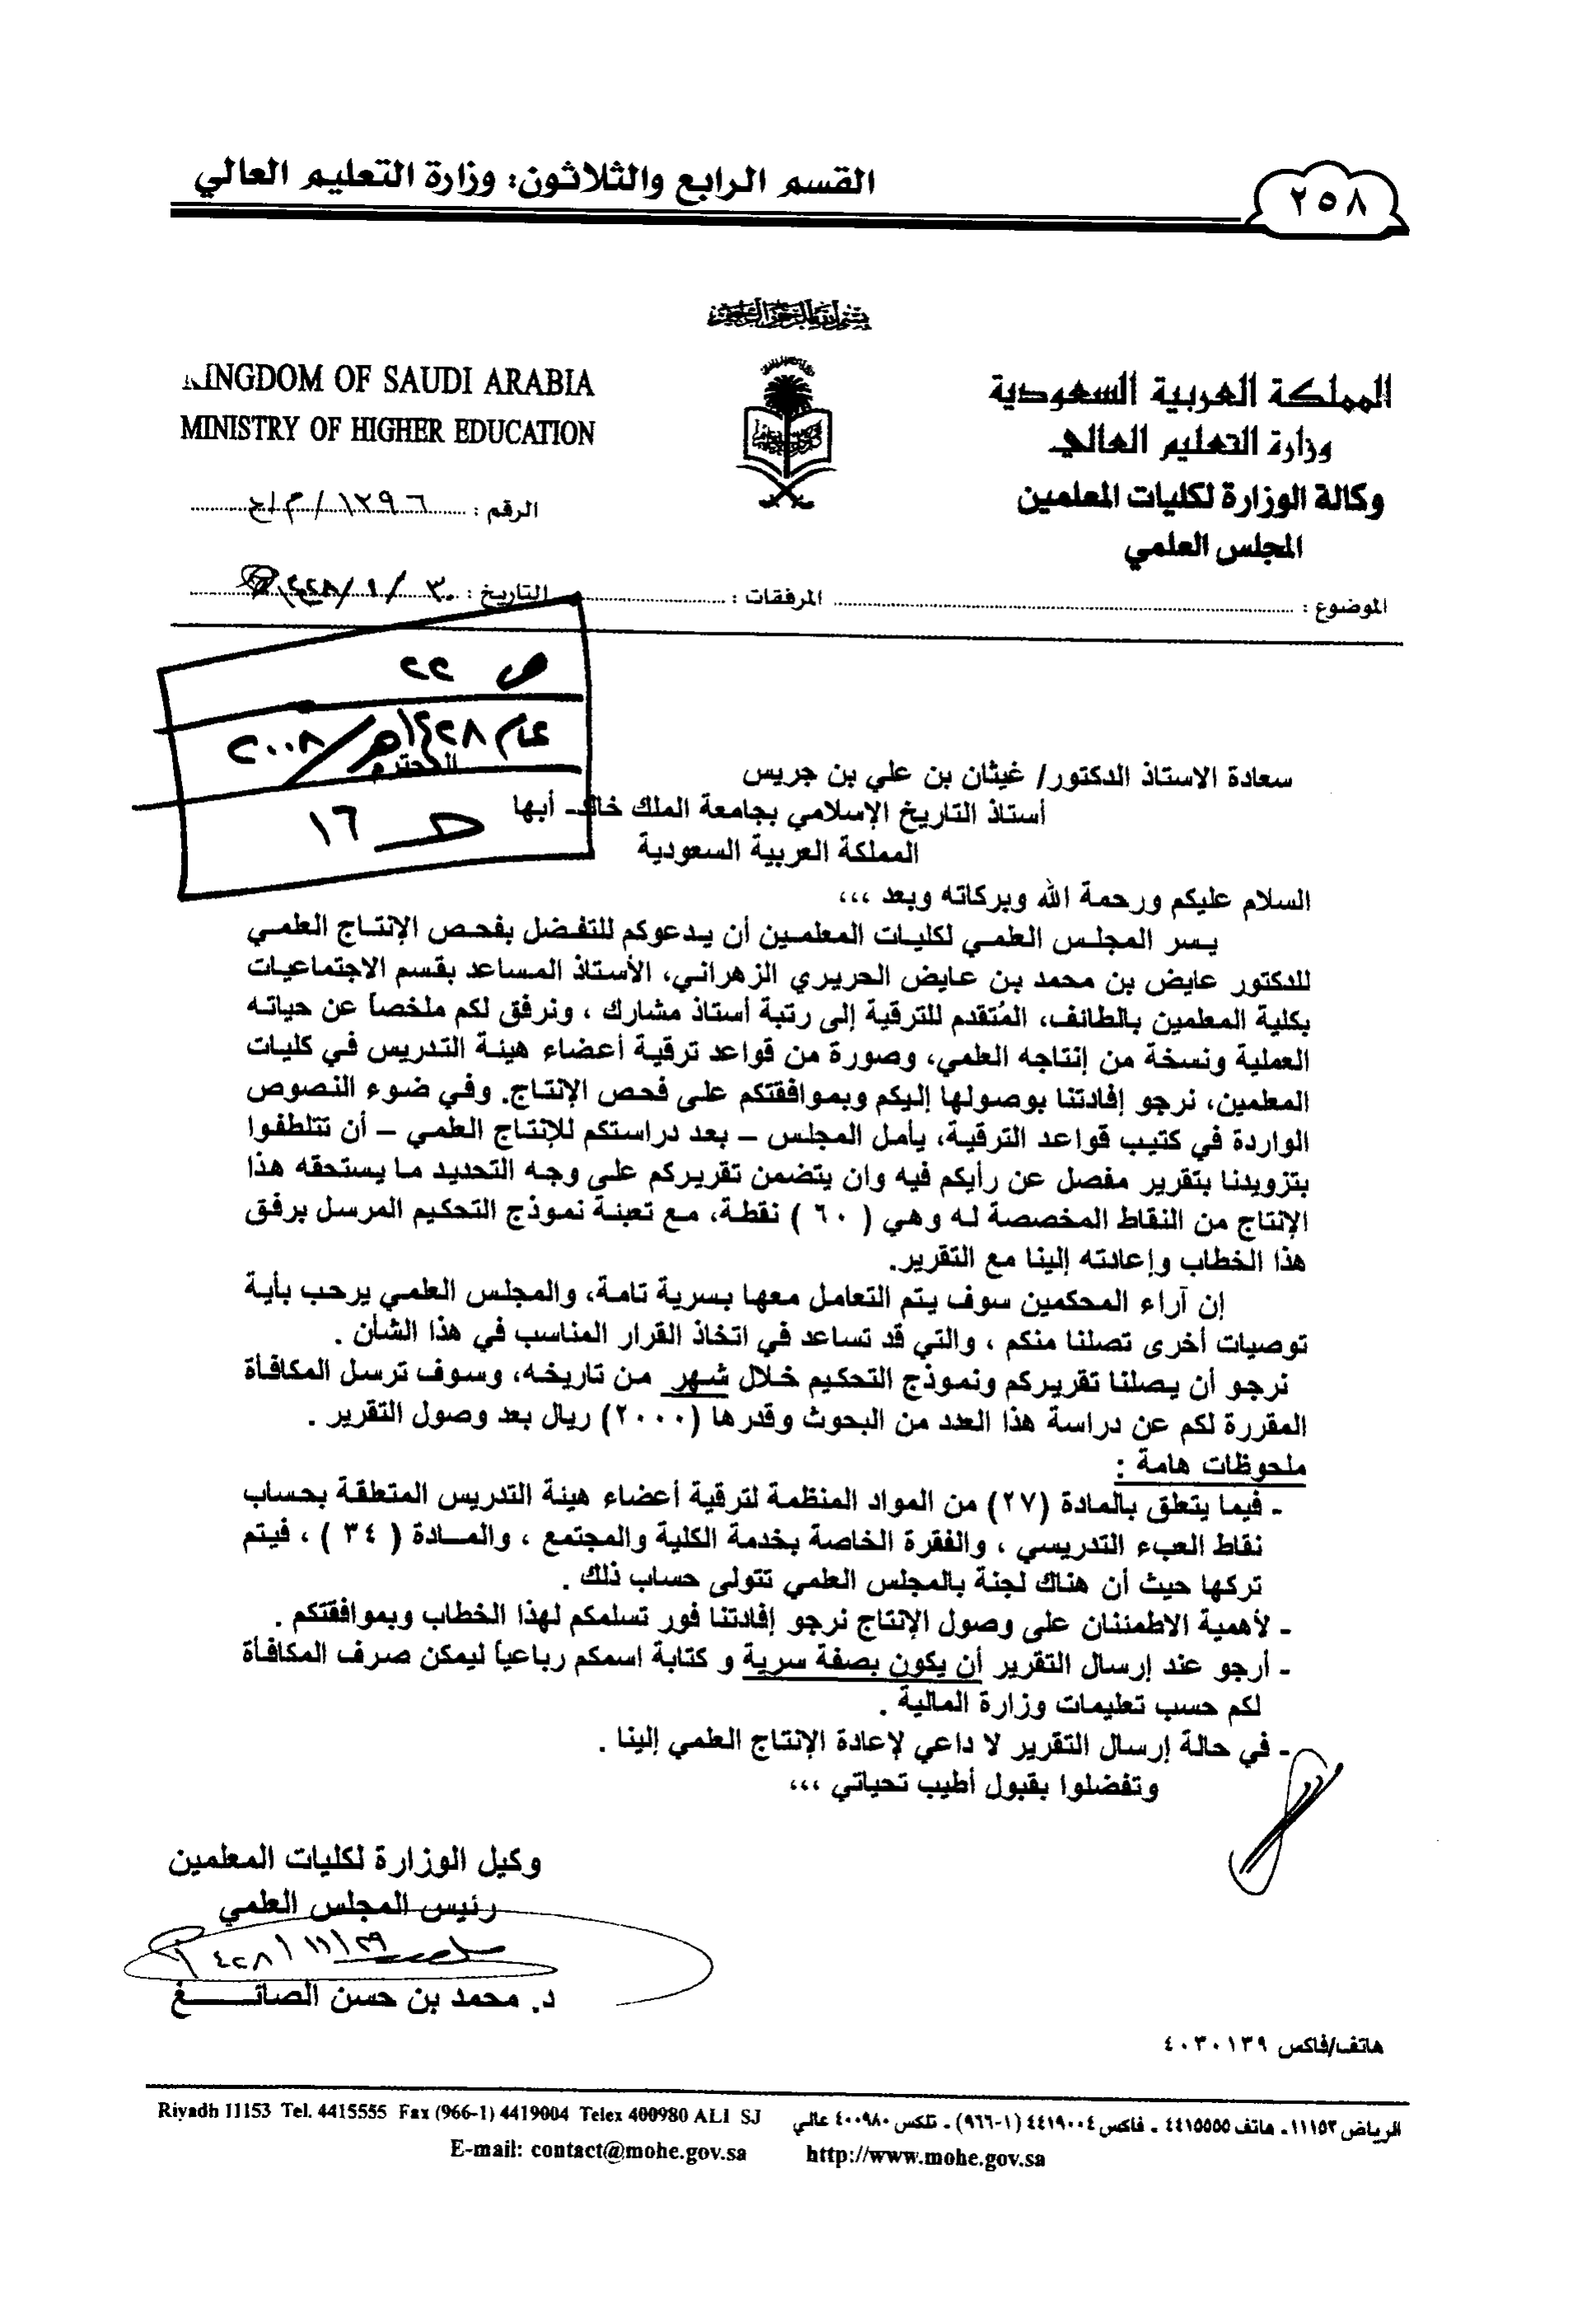 القسم الرابع والثلاثون: وزارة التعليم العالي
٢٥٨
بسم الله الرحمن الرحيم
KINGDOM OF SAUDI ARABIA
MINISTRY OF HIGHER EDUCATION
المملكة العربية السعودية
وزارة التعليم العالي
وكالة الوزارة لكليات المعلمين
المجلس العلمي
الرقم : ١٢٩٦/م/ع
الموضوع : المرفقات : التاريخ : ٣٠/ /١٤٢٨
ص ٢٢
عام ١٤٢٨هـ/٢٠٠٨
١٦
سعادة الاستاذ الدكتور/ غيثان بن علي بن جريس المحترم
أستاذ التاريخ الإسلامي بجامعة الملك خالد- أبها
المملكة العربية السعودية
السلام عليكم ورحمة الله وبركاته وبعد ،،،
يسر المجلس العلمي لكليات المعلمين أن يدعوكم للتفضل بفحص الإنتاج العلمي
للدكتور عايض بن محمد بن عايض الحريري الزهراني، الأستاذ المساعد بقسم الاجتماعيات
بكلية المعلمين بالطائف، المُتقدم للترقية إلى رتبة أستاذ مشارك ، ونرفق لكم ملخصاً عن حياته
العملية ونسخة من إنتاجه العلمي، وصورة من قواعد ترقية أعضاء هيئة التدريس في كليات
المعلمين، نرجو إفادتنا بوصولها إليكم وبموافقتكم على فحص الإنتاج. وفي ضوء النصوص
الواردة في كتيب قواعد الترقية، يأمل المجلس – بعد دراستكم للإنتاج العلمي – أن تتلطفوا
بتزويدنا بتقرير مفصل عن رأيكم فيه وان يتضمن تقريركم على وجه التحديد ما يستحقه هذا
الإنتاج من النقاط المخصصة له وهي ( ٦٠ ) نقطة، مع تعبئة نموذج التحكيم المرسل برفق
هذا الخطاب وإعادته إلينا مع التقرير.
إن آراء المحكمين سوف يتم التعامل معها بسرية تامة، والمجلس العلمي يرحب بأية
توصيات أخرى تصلنا منكم ، والتي قد تساعد في اتخاذ القرار المناسب في هذا الشأن .
نرجو أن يصلنا تقريركم ونموذج التحكيم خلال شهر من تاريخه، وسوف ترسل المكافأة
المقررة لكم عن دراسة هذا العدد من البحوث وقدرها (٢٠٠٠) ريال بعد وصول التقرير .
ملحوظات هامة :
- فيما يتعلق بالمادة (٢٧) من المواد المنظمة لترقية أعضاء هيئة التدريس المتعلقة بحساب
نقاط العبء التدريسي ، والفقرة الخاصة بخدمة الكلية والمجتمع ، والمـــادة ( ٣٤ ) ، فيتم
تركها حيث أن هناك لجنة بالمجلس العلمي تتولى حساب ذلك .
- لأهمية الاطمئنان على وصول الإنتاج نرجو إفادتنا فور تسلمكم لهذا الخطاب وبموافقتكم .
- أرجو عند إرسال التقرير أن يكون بصفة سرية و كتابة اسمكم رباعياً ليمكن صرف المكافأة
لكم حسب تعليمات وزارة المالية .
- في حالة إرسال التقرير لا داعي لإعادة الإنتاج العلمي إلينا .
وتفضلوا بقبول أطيب تحياتي ،،،
وكيل الوزارة لكليات المعلمين
رئيس المجلس العلمي
٢٩/ ١١/ ٤٢٨
د. محمد بن حسن الصائـــــغ
هاتف/فاكس ٤٠٣٠١٣٩
Riyadh 11153 Tel. 4415555 Fax (966-1) 4419004 Telex 400980 ALI SJ
الرياض ١١١٥٣ـ هاتف ٤٤١٥٥٥٥ ـ فاكس ٤٤١٩٠٠٤ (١-٩٦٦) ـ تلكس ٤٠٠٩٨٠ عالي
E-mail: contact@mohe.gov.sa http://www.mohe.gov.sa